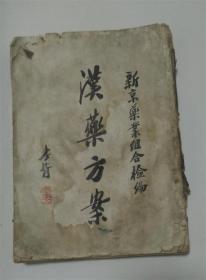 新京藥業組合檢編
漢藥方案